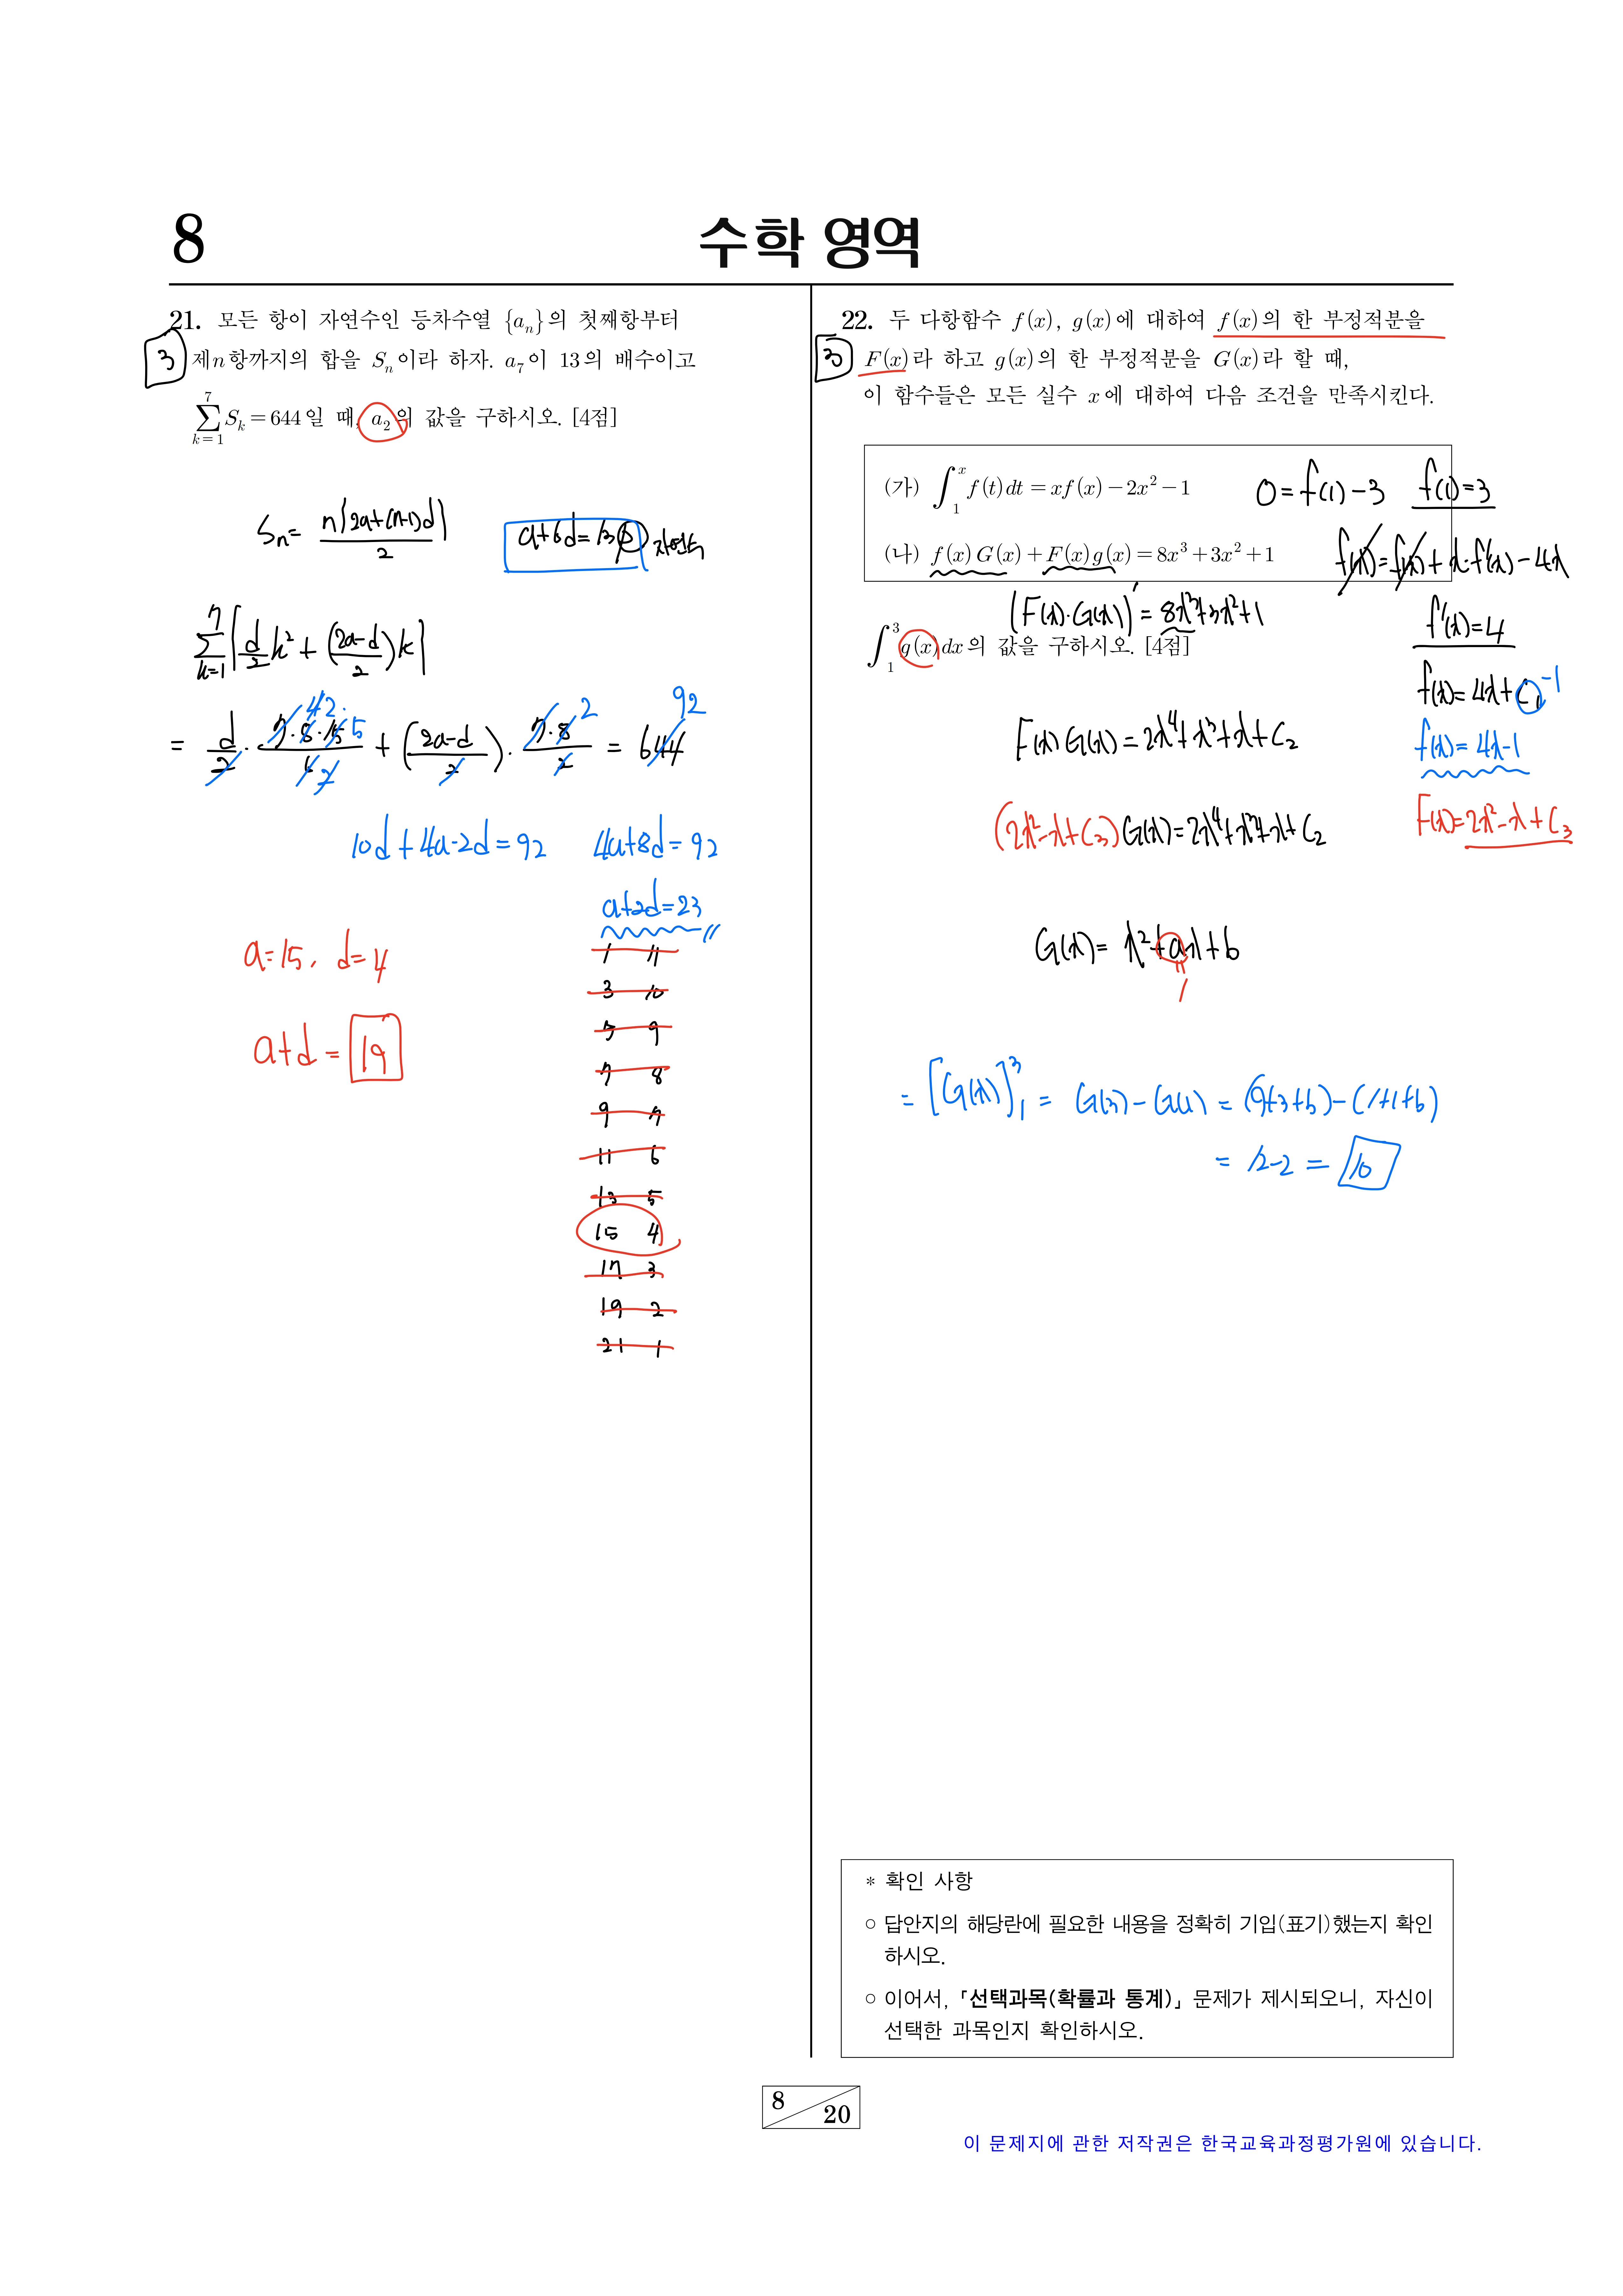 8
수학 영역
21. 모든 항이 자연수인 등차수열 {a_n}의 첫째항부터
3
제n항까지의 합을 S_n이라 하자. a_7이 13의 배수이고
\sum_{k=1}^{7} S_k = 644일 때, a_2의 값을 구하시오. [4점]
S_n = \frac{n{2a+(n-1)d}}{2}
a+6d=13 자연수
\sum_{k=1}^{7} {\frac{d}{2}k^2 + (\frac{2a-d}{2})k}
= \frac{d}{2} · \frac{7·8·15}{6} + (\frac{2a-d}{2}) · \frac{7·8}{2} = 644
4 2 · 5 2 2 92
10d+4a-2d=92 4a+8d=92
a+2d=23
a=15, d=4
a+d = 19
1 11
3 10
5 9
7 8
9 7
11 6
13 5
15 4
17 3
19 2
21 1
22. 두 다항함수 f(x), g(x)에 대하여 f(x)의 한 부정적분을
F(x)라 하고 g(x)의 한 부정적분을 G(x)라 할 때,
이 함수들은 모든 실수 x에 대하여 다음 조건을 만족시킨다.
(가) \int_1^x f(t)dt = xf(x) - 2x^2 - 1
0=f(1)-3 f(1)=3
(나) f(x)G(x) + F(x)g(x) = 8x^3 + 3x^2 + 1
f(x)=f(x)+x·f'(x)-4x
(F(x)·G(x))' = 8x^3+3x^2+1
\int_1^3 g(x)dx의 값을 구하시오. [4점]
f'(x)=4
f(x)=4x+C_1 -1
f(x)=4x-1
F(x)=2x^2-x+C_3
F(x)G(x)=2x^4+x^3+x+C_2
(2x^2-x+C_3)G(x)=2x^4+x^3+x+C_2
G(x)= x^2+ax+b
1
= [G(x)]_1^3 = G(3)-G(1) = (9+3+b)-(1+1+b)
= 12-2 = 10
* 확인 사항
○ 답안지의 해당란에 필요한 내용을 정확히 기입(표기)했는지 확인
하시오.
○ 이어서, 「선택과목(확률과 통계)」 문제가 제시되오니, 자신이
선택한 과목인지 확인하시오.
8
20
이 문제지에 관한 저작권은 한국교육과정평가원에 있습니다.